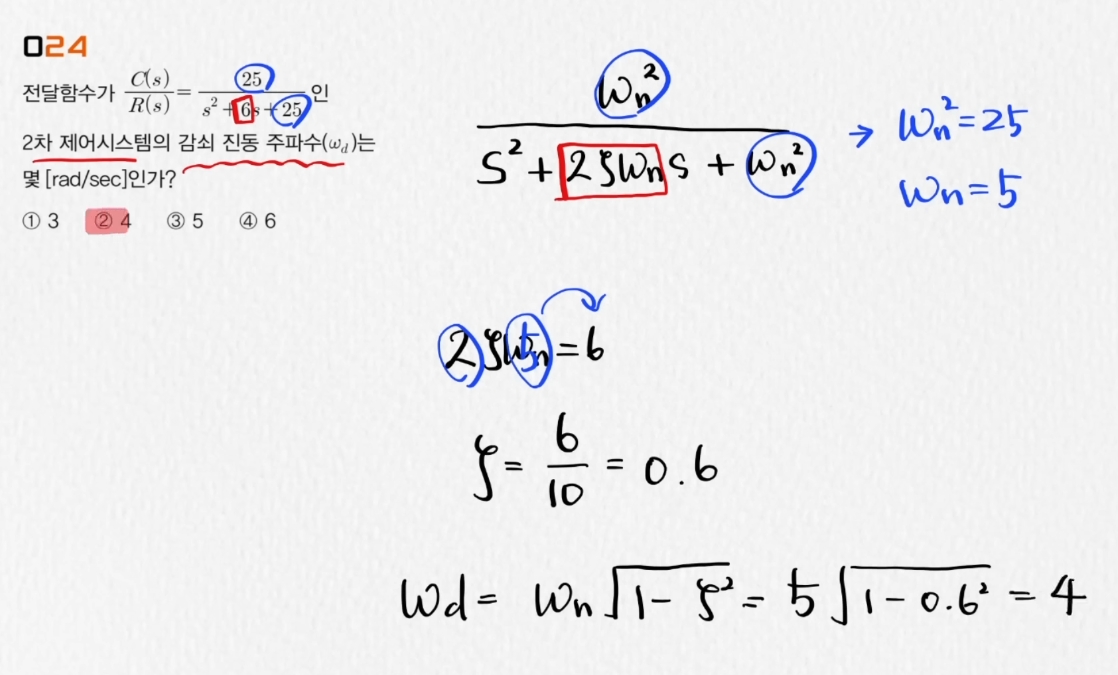 024
전달함수가 C(s)/R(s) = 25/(s² + 6s + 25) 인
2차 제어시스템의 감쇠 진동 주파수(ω_d)는
몇 [rad/sec]인가?
① 3 ② 4 ③ 5 ④ 6
ω_n²/(s² + 2ζω_n s + ω_n²) → ω_n² = 25
ω_n = 5
2ζω_n = 6
5
ζ = 6/10 = 0.6
ω_d = ω_n√(1 - ζ²) = 5√(1 - 0.6²) = 4